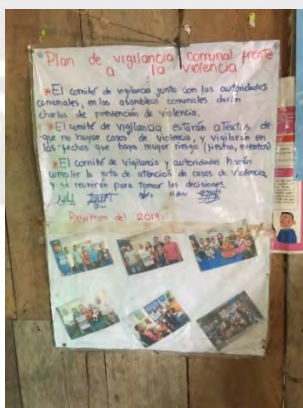 Plan de vigilancia comunal frente
a la violencia
*El comité de vigilancia junto con las autoridades
comunales, en las asambleas comunales darán
charlas de prevención de violencia.
*El comité de vigilancia estarán atentos de
que no hayan casos de violencia, y vigilarán en
las fechas que haya mayor riesgo (fiestas, eventos)
*El comité de vigilancia y autoridades harán
cumplir la ruta de atención de casos de violencia,
y se reunirán para tomar las decisiones.
Resumen del 2019: